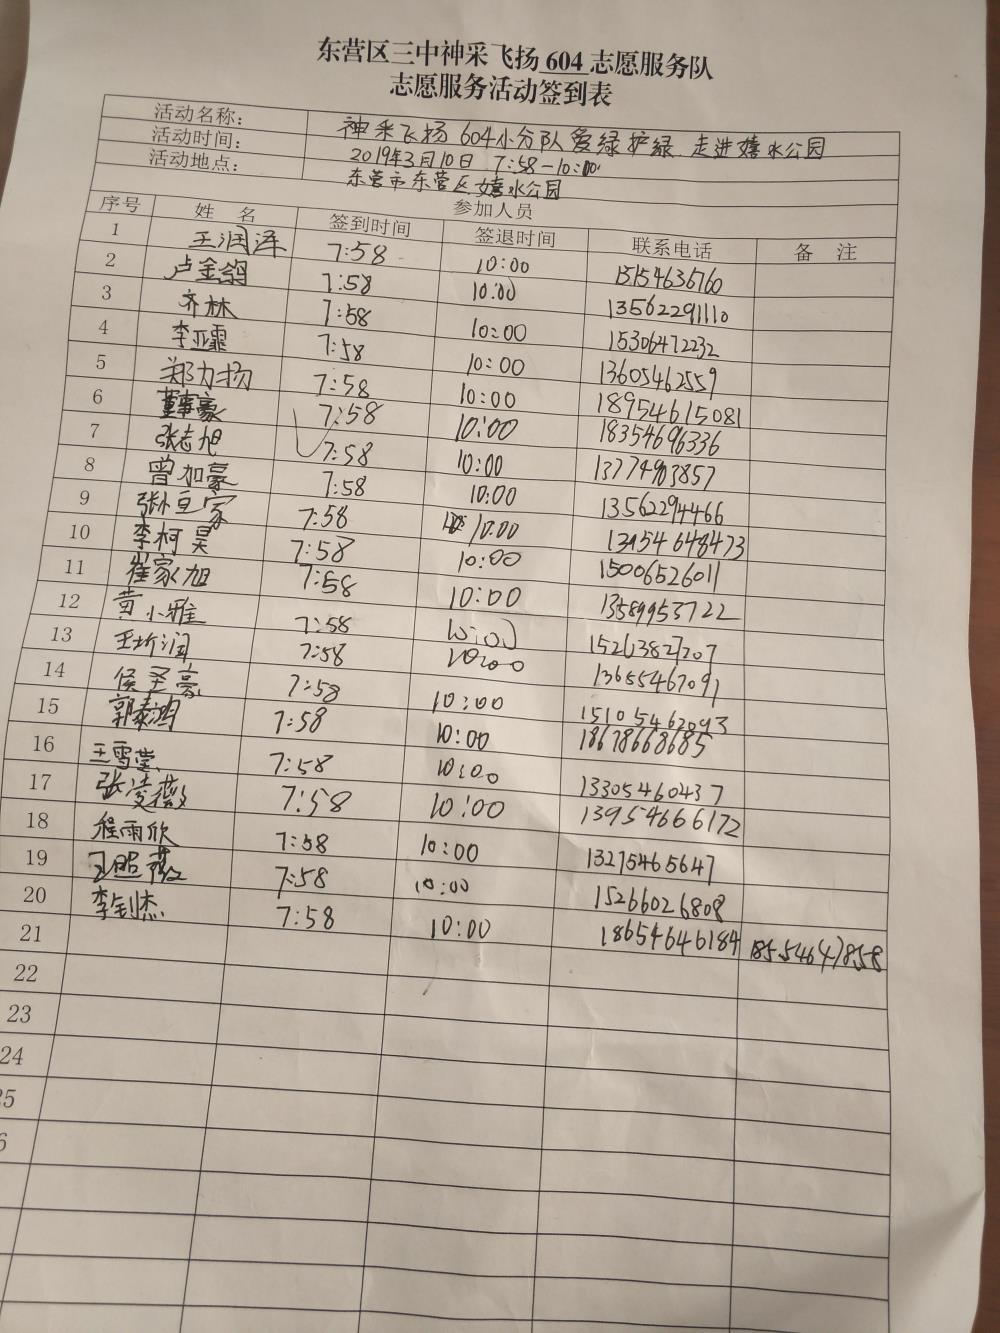 东营区三中神采飞扬 604 志愿服务队
志愿服务活动签到表
活动名称： 神采飞扬 604小分队爱绿护绿.走进嬉水公园
活动时间： 2019年3月10日 7:58-10:00
活动地点： 东营市东营区嬉水公园
参加人员
序号 姓 名 签到时间 签退时间 联系电话 备 注
1 王润泽 7:58 10:00 15154636760
2 卢金鸽 7:58 10:00 13562291110
3 齐林 7:58 10:00 15306472232
4 李亚霏 7:58 10:00 13605462559
5 郑力扬 7:58 10:00 18954615081
6 董事豪 7:58 10:00 18354696336
7 张志旭 7:58 10:00 13774983857
8 曾加豪 7:58 10:00 13562294466
9 7:58 10:00 13154648473
10 李柯昊 7:58 10:00 15006526011
11 崔家旭 7:58 10:00 13589953722
12 黄小雅 7:58 10:00 15263827207
13 王圻润 7:58 10:00 13655467091
14 侯圣豪 7:58 10:00 15105462093
15 郭泰鸿 7:58 10:00 18678668685
16 王雪莹 7:58 10:00 13305460437
17 张凌薇 7:58 10:00 13954666172
18 程雨欣 7:58 10:00 13275465647
19 王照薇 7:58 10:00 15266026808
20 李钊杰 7:58 10:00 18654646184 18554647858
21
22
23
24
25
6